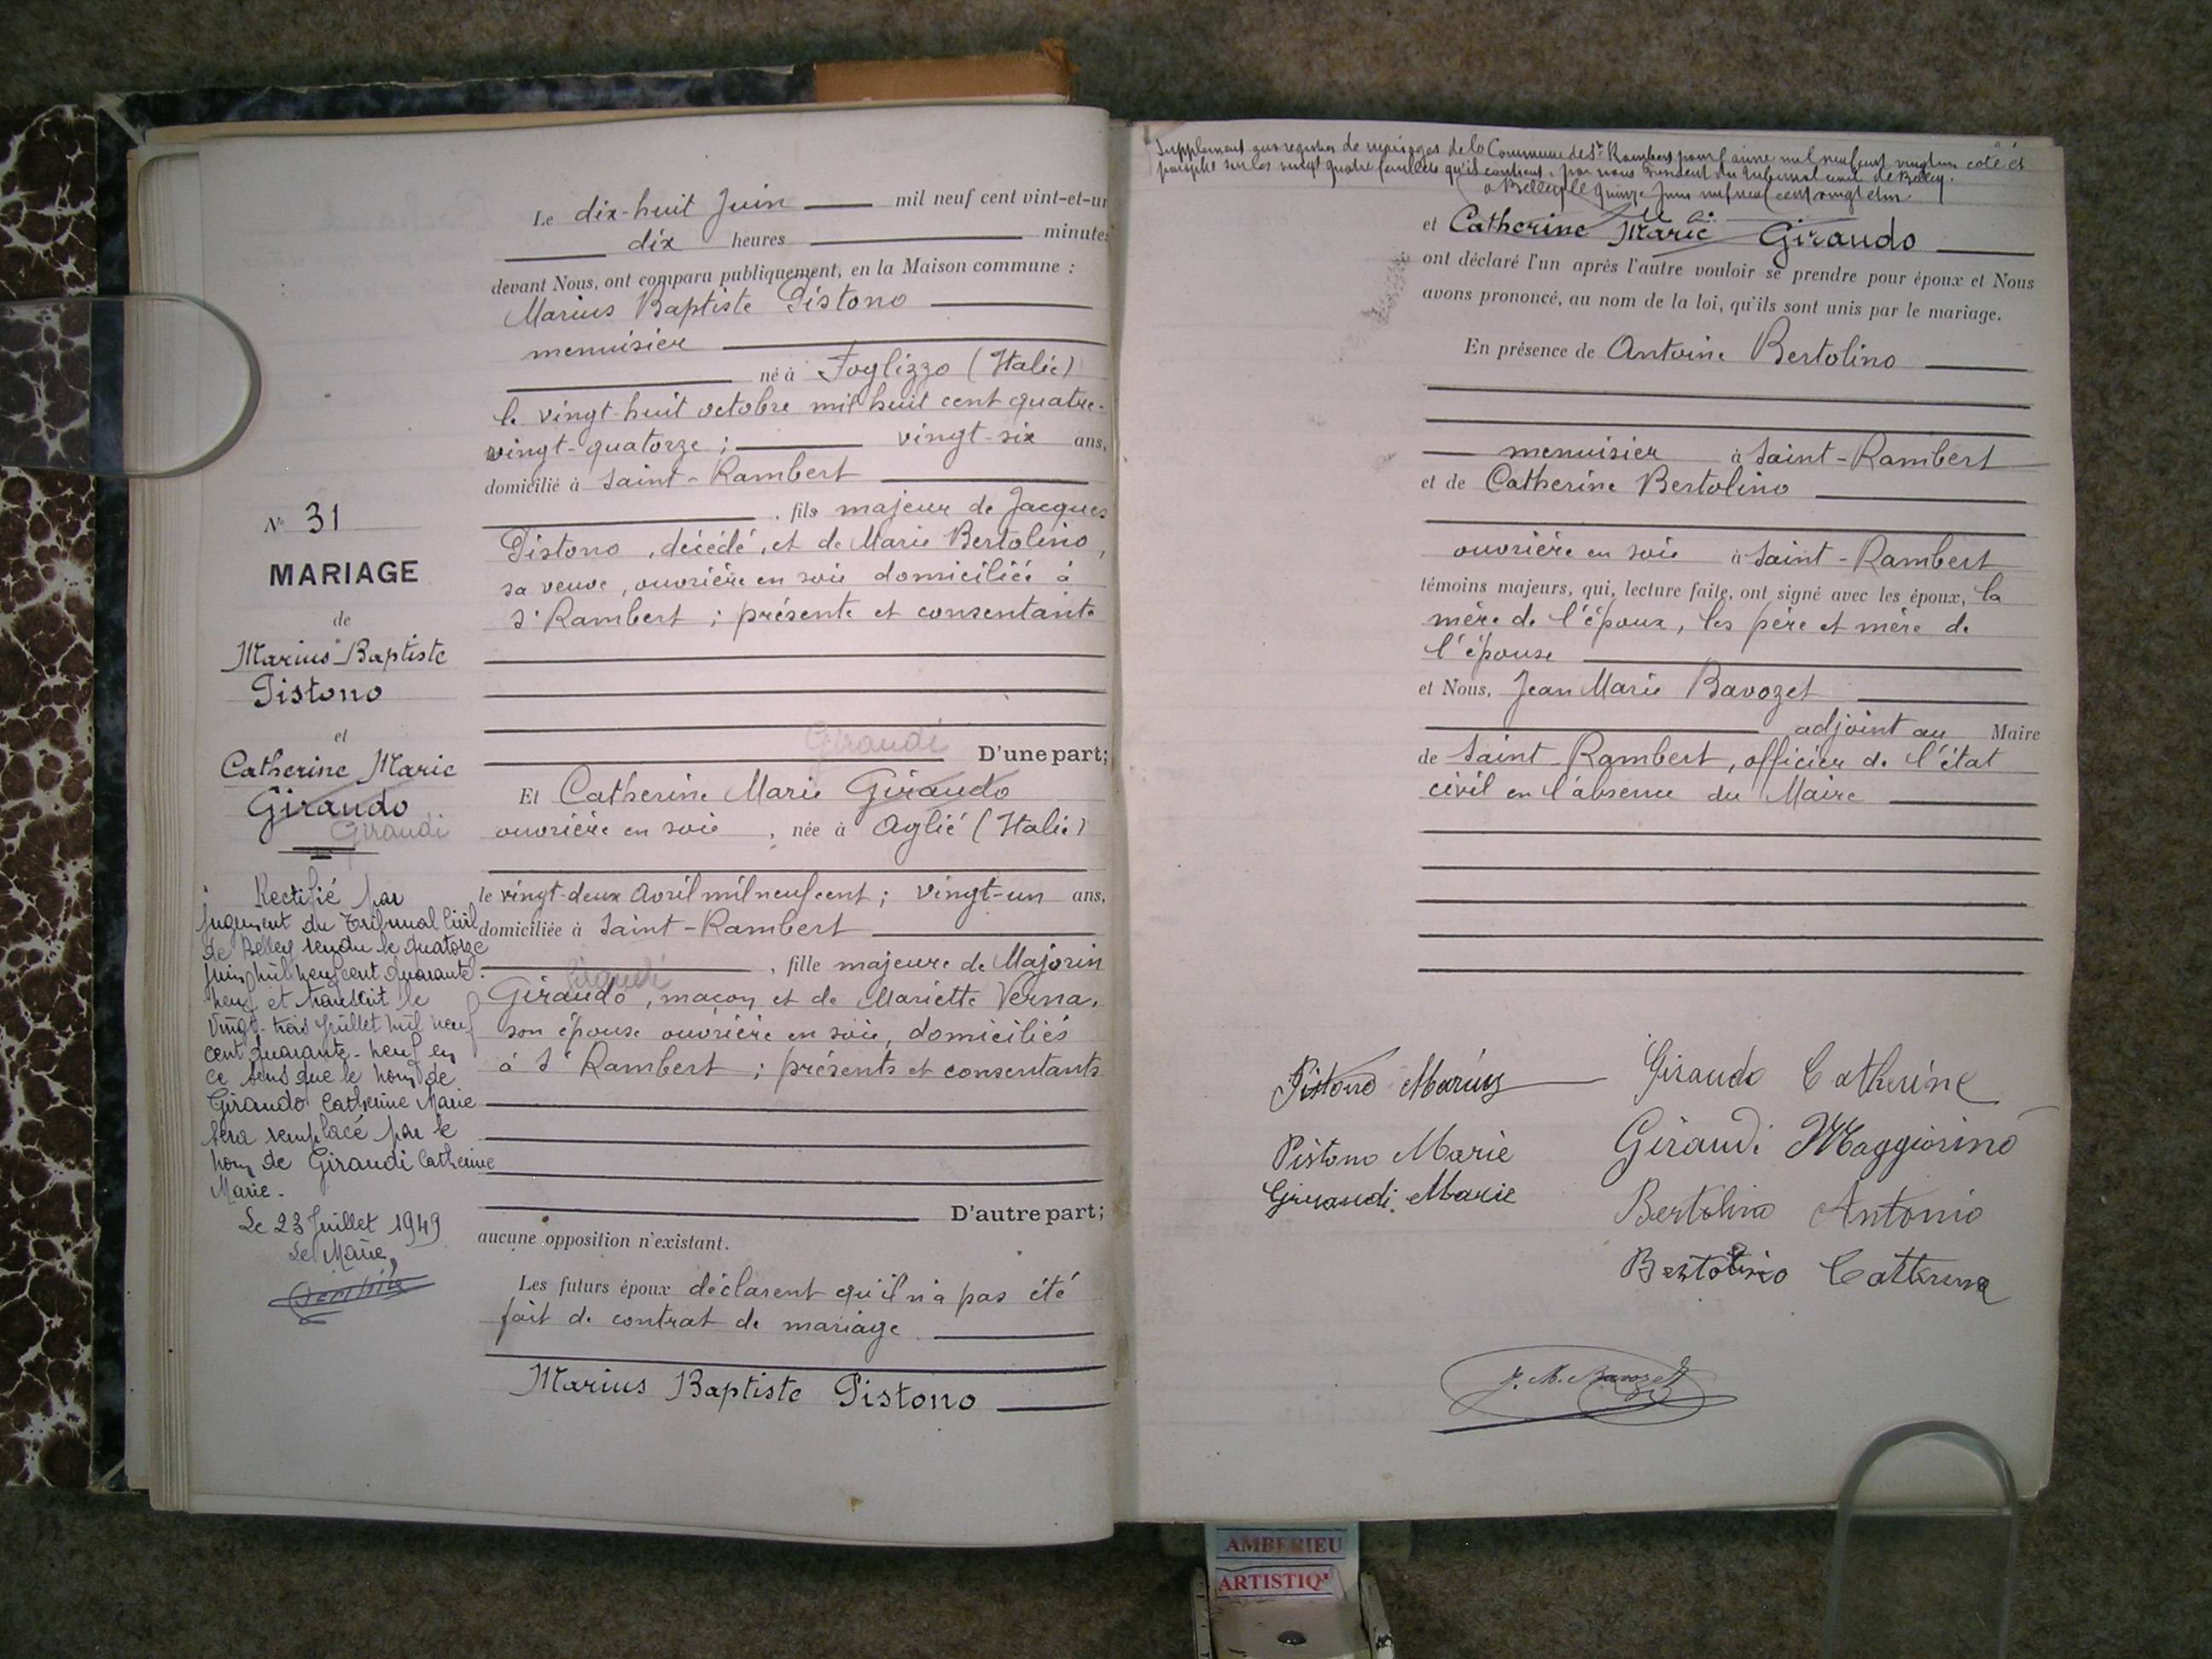 Le dix-huit Juin mil neuf cent vint-et-un
dix heures minutes
devant Nous, ont comparu publiquement, en la Maison commune :
Marius Baptiste Pistono
menuisier
né à Foglizzo (Italie)
le vingt-huit octobre mil huit cent quatre-
vingt-quatorze ; vingt-six ans,
domicilié à Saint-Rambert
, fils majeur de Jacques
Pistono, décédé, et de Marie Bertolino,
sa veuve, ouvrière en soie domiciliée à
St Rambert ; présente et consentante
Giraudi
D'une part;
Et Catherine Marie Giraudo
ouvrière en soie, née à Aglié (Italie)
le vingt-deux Avril mil neuf cent ; vingt-un ans,
domiciliée à Saint-Rambert
, fille majeure de Majorin
Giraudi
Giraudo, maçon et de Mariette Verna,
son épouse ouvrière en soie, domiciliés
à St Rambert ; présents et consentants
D'autre part;
aucune opposition n'existant.
Les futurs époux déclarent qu'il n'a pas été
fait de contrat de mariage
Marius Baptiste Pistono
N° 31
MARIAGE
de
Marius Baptiste
Pistono
et
Catherine Marie
Giraudo
Giraudi
Rectifié par
Jugement du Tribunal Civil
de Belley rendu le quatorze
Juin mil neuf cent quarante-
neuf et transcrit le
Vingt-trois Juillet mil neuf
cent quarante-neuf en
ce sens que le nom de
Giraudo Catherine Marie
sera remplacé par le
nom de Giraudi Catherine
Marie.
Le 23 Juillet 1949
Le Maire,
Supplément aux registres de mariages de la Commune de St Rambert pour l'année mil neuf cent vingt un coté et
paraphé sur les vingt quatre feuillets qu'il contient, par nous Président du Tribunal civil de Belley.
à Belley le quinze Juin mil neuf cent vingt et un
et Catherine Marie Giraudo
ont déclaré l'un après l'autre vouloir se prendre pour époux et Nous
avons prononcé, au nom de la loi, qu'ils sont unis par le mariage.
En présence de Antoine Bertolino
menuisier à Saint-Rambert
et de Catherine Bertolino
ouvrière en soie à Saint-Rambert
témoins majeurs, qui, lecture faite, ont signé avec les époux, la
mère de l'époux, les père et mère de
l'épouse
et Nous, Jean Marie Bavozet
adjoint au Maire
de Saint Rambert, officier de l'état
civil en l'absence du Maire
Pistono Marius
Giraudo Catherine
Pistono Marie
Giraudi Maggiorino
Giraudi Marie
Bertolino Antonio
Bertolino Catterina
J. M. Bavozet
AMBERIEU
ARTISTIQ